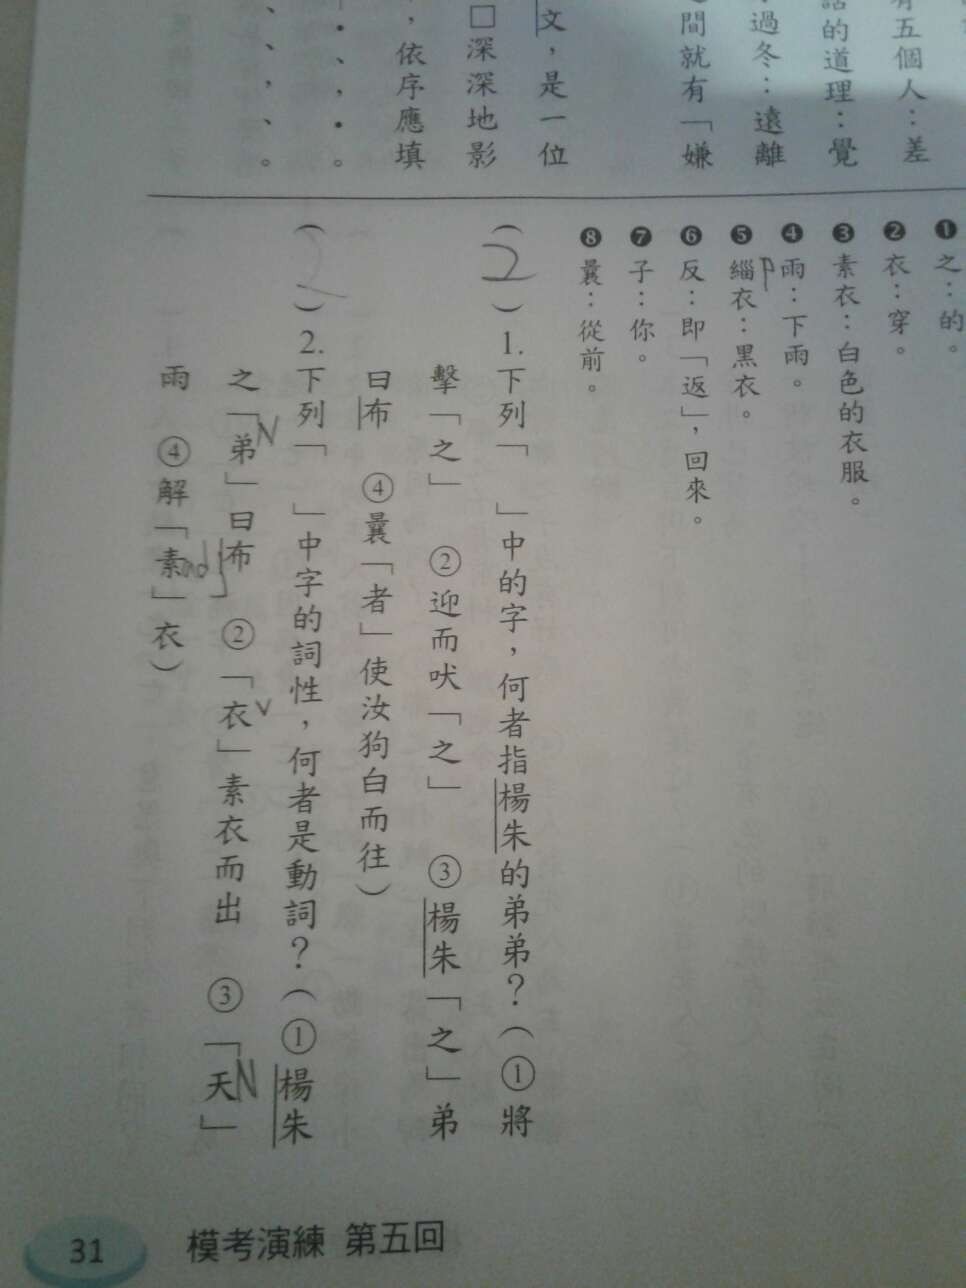 有五個人：差
話的道理：覺
過冬：遠離
間就有「嫌
文，是一位
□深深地影
，依序應填
❶之：的。
❷衣：穿。
❸素衣：白色的衣服。
❹雨：下雨。
❺緇衣：黑衣。
❻反：即「返」，回來。
❼子：你。
❽曩：從前。
（2）1.下列「　」中的字，何者指楊朱的弟弟？（①將
擊「之」　②迎而吠「之」　③楊朱「之」弟
曰布　④曩「者」使汝狗白而往）
（2）2.下列「　」中字的詞性，何者是動詞？（①楊朱
之「弟」曰布　②「衣」素衣而出　③「天」
雨　④解「素」衣）
N
V
N
31 模考演練 第五回